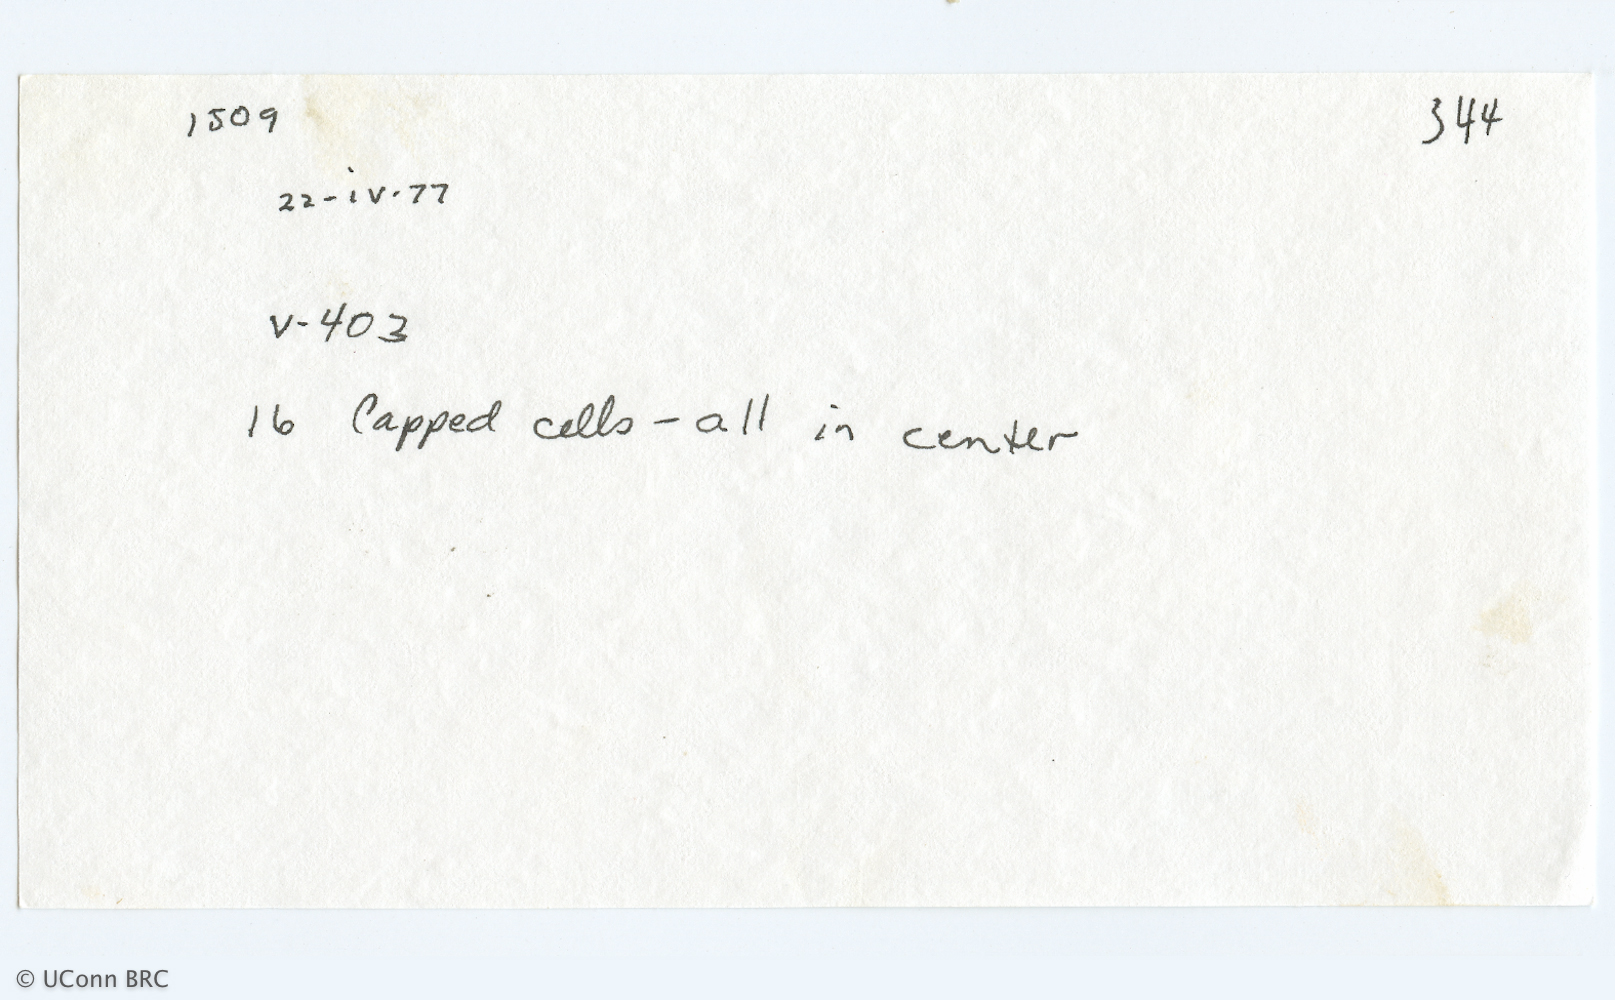 1509 344
22-iv-77
V-403
16 Capped cells - all in center
© UConn BRC